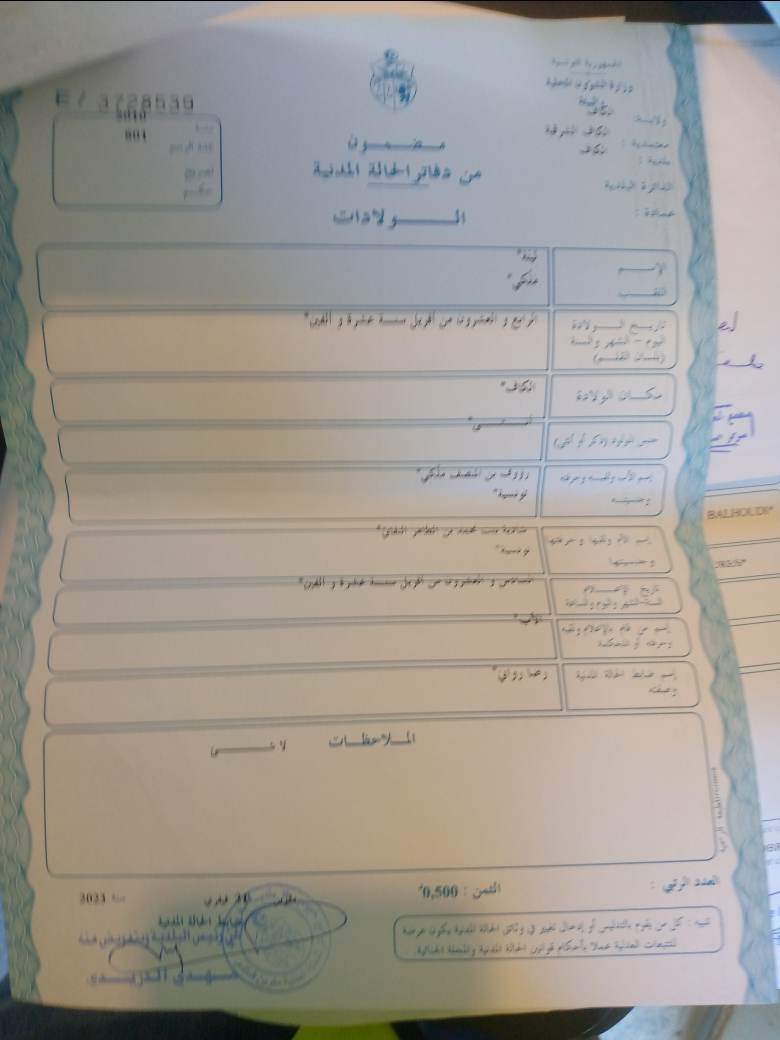 الجمهورية التونسية
وزارة الشؤون المحلية
والبيئة
E / 3728539
ولاية : الكاف
معتمدية : الكاف الشرقية
بلدية : الكاف
الدائرة البلدية
عمادة :
2010
سنة
801
عدد الرسم
مضمون
من دفاتر الحالة المدنية
الولادات
الإسم
اللقب
ملكي*
تاريخ الولادة
اليوم - الشهر والسنة
(بلسان القلم)
الرابع و العشرون من أفريل سنة عشرة و ألفين*
مكان الولادة
الكاف*
جنس المولود (ذكر أو أنثى)
أنثى*
إسم الأب ولقبه وحرفته
وجنسيته
رؤوف بن المنصف ملكي*
تونسية*
إسم الأم ولقبها وحرفتها
وجنسيتها
شاذية بنت محمد بن الطاهر
تونسية*
تاريخ الإعلام
السنة-الشهر واليوم والساعة
السادس و العشرون من أفريل سنة عشرة و ألفين*
إسم من قام بالإعلام ولقبه
وحرفته أو المحكمة
الأب*
إسم ضابط الحالة المدنية
وصفته
الملاحظات
لا شيء
العدد الرتبي :
الثمن : 0,500د
سنة 2023
تنبيه : كل من يقوم بالتدليس أو إدخال تغيير في وثائق الحالة المدنية يكون عرضة
للتتبعات العدلية عملا بأحكام قوانين الحالة المدنية والمجلة الجنائية.
ضابط الحالة المدنية
عن رئيس البلدية وبتفويض منه
BALHOUDI*